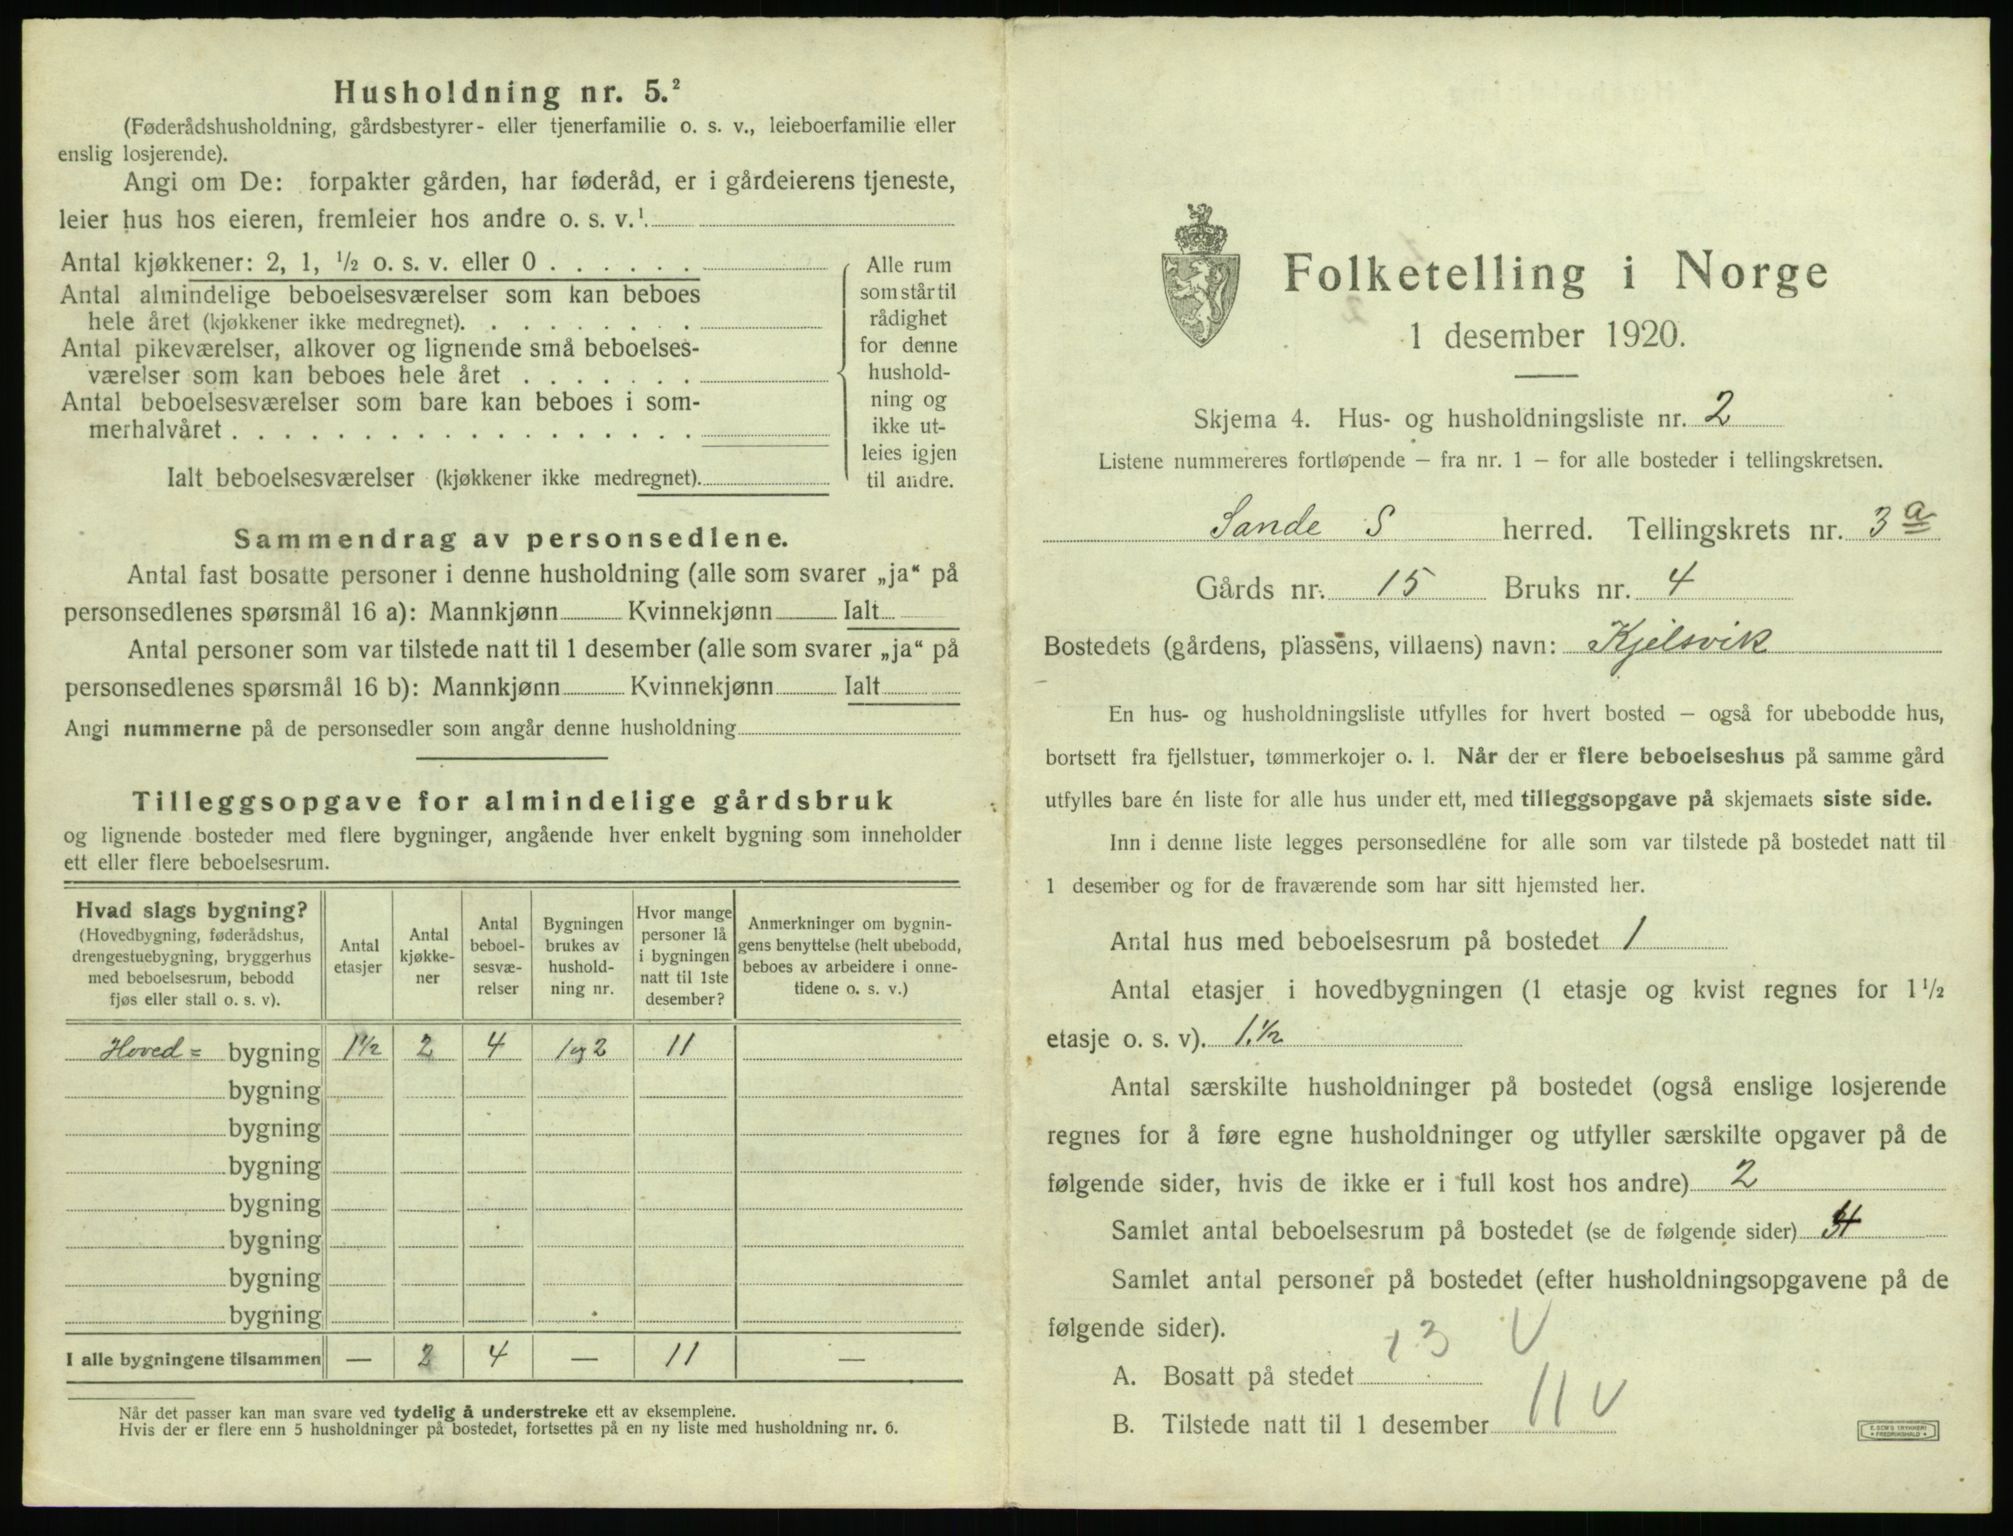 Husholdning nr. 5.²
(Føderådshusholdning, gårdsbestyrer- eller tjenerfamilie o. s. v., leieboerfamilie eller
enslig losjerende).
Angi om De: forpakter gården, har føderåd, er i gårdeierens tjeneste,
leier hus hos eieren, fremleier hos andre o. s. v.¹.
Antal kjøkkener: 2, 1, ½ o. s. v. eller 0 . . . . . .
Antal almindelige beboelsesværelser som kan beboes
hele året (kjøkkener ikke medregnet). . . . . . . . .
Antal pikeværelser, alkover og lignende små beboelses-
værelser som kan beboes hele året . . . . . . .
Antal beboelsesværelser som bare kan beboes i som-
merhalvåret . . . . . . . . . . . . . . . . . .
Ialt beboelsesværelser (kjøkkener ikke medregnet).
Alle rum
som står til
rådighet
for denne
hushold-
ning og
ikke ut-
leies igjen
til andre.
Sammendrag av personsedlene.
Antal fast bosatte personer i denne husholdning (alle som svarer „ja“ på
personsedlenes spørsmål 16 a): Mannkjønn Kvinnekjønn Ialt
Antal personer som var tilstede natt til 1 desember (alle som svarer „ja“ på
personsedlenes spørsmål 16 b): Mannkjønn Kvinnekjønn Ialt
Angi nummerne på de personsedler som angår denne husholdning
Tilleggsopgave for almindelige gårdsbruk
og lignende bosteder med flere bygninger, angående hver enkelt bygning som inneholder
ett eller flere beboelsesrum.
Hvad slags bygning?
(Hovedbygning, føderådshus,
drengestuebygning, bryggerhus
med beboelsesrum, bebodd
fjøs eller stall o. s. v).
Antal
etasjer
Antal
kjøkke-
ner
Antal
beboel-
sesvæ-
relser
Bygningen
brukes av
hushold-
ning nr.
Hvor mange
personer lå
i bygningen
natt til 1ste
desember?
Anmerkninger om bygnin-
gens benyttelse (helt ubebodd,
beboes av arbeidere i onne-
tidene o. s. v.)
Hoved= bygning 1½ 2 4 1 og 2 11
bygning
bygning
bygning
bygning
bygning
bygning
bygning
I alle bygningene tilsammen — 2 4 — 11 —
Når det passer kan man svare ved tydelig å understreke ett av eksemplene.
Hvis der er flere enn 5 husholdninger på bostedet, fortsettes på en ny liste med husholdning nr. 6.
Folketelling i Norge
1 desember 1920.
Skjema 4. Hus- og husholdningsliste nr. 2
Listene nummereres fortløpende — fra nr. 1 — for alle bosteder i tellingskretsen.
Sande S herred. Tellingskrets nr. 3 a
Gårds nr. 15 Bruks nr. 4
Bostedets (gårdens, plassens, villaens) navn: Kjelsvik
En hus- og husholdningsliste utfylles for hvert bosted — også for ubebodde hus,
bortsett fra fjellstuer, tømmerkojer o. l. Når der er flere beboelseshus på samme gård
utfylles bare én liste for alle hus under ett, med tilleggsopgave på skjemaets siste side.
Inn i denne liste legges personsedlene for alle som var tilstede på bostedet natt til
1 desember og for de fraværende som har sitt hjemsted her.
Antal hus med beboelsesrum på bostedet 1
Antal etasjer i hovedbygningen (1 etasje og kvist regnes for 1½
etasje o. s. v). 1.½
Antal særskilte husholdninger på bostedet (også enslige losjerende
regnes for å føre egne husholdninger og utfyller særskilte opgaver på de
følgende sider, hvis de ikke er i full kost hos andre) 2
Samlet antal beboelsesrum på bostedet (se de følgende sider) 4
Samlet antal personer på bostedet (efter husholdningsopgavene på de
følgende sider).
A. Bosatt på stedet 13 V
B. Tilstede natt til 1 desember 11 V
E. SEM'S TRYKKERI
FREDRIKSHALD